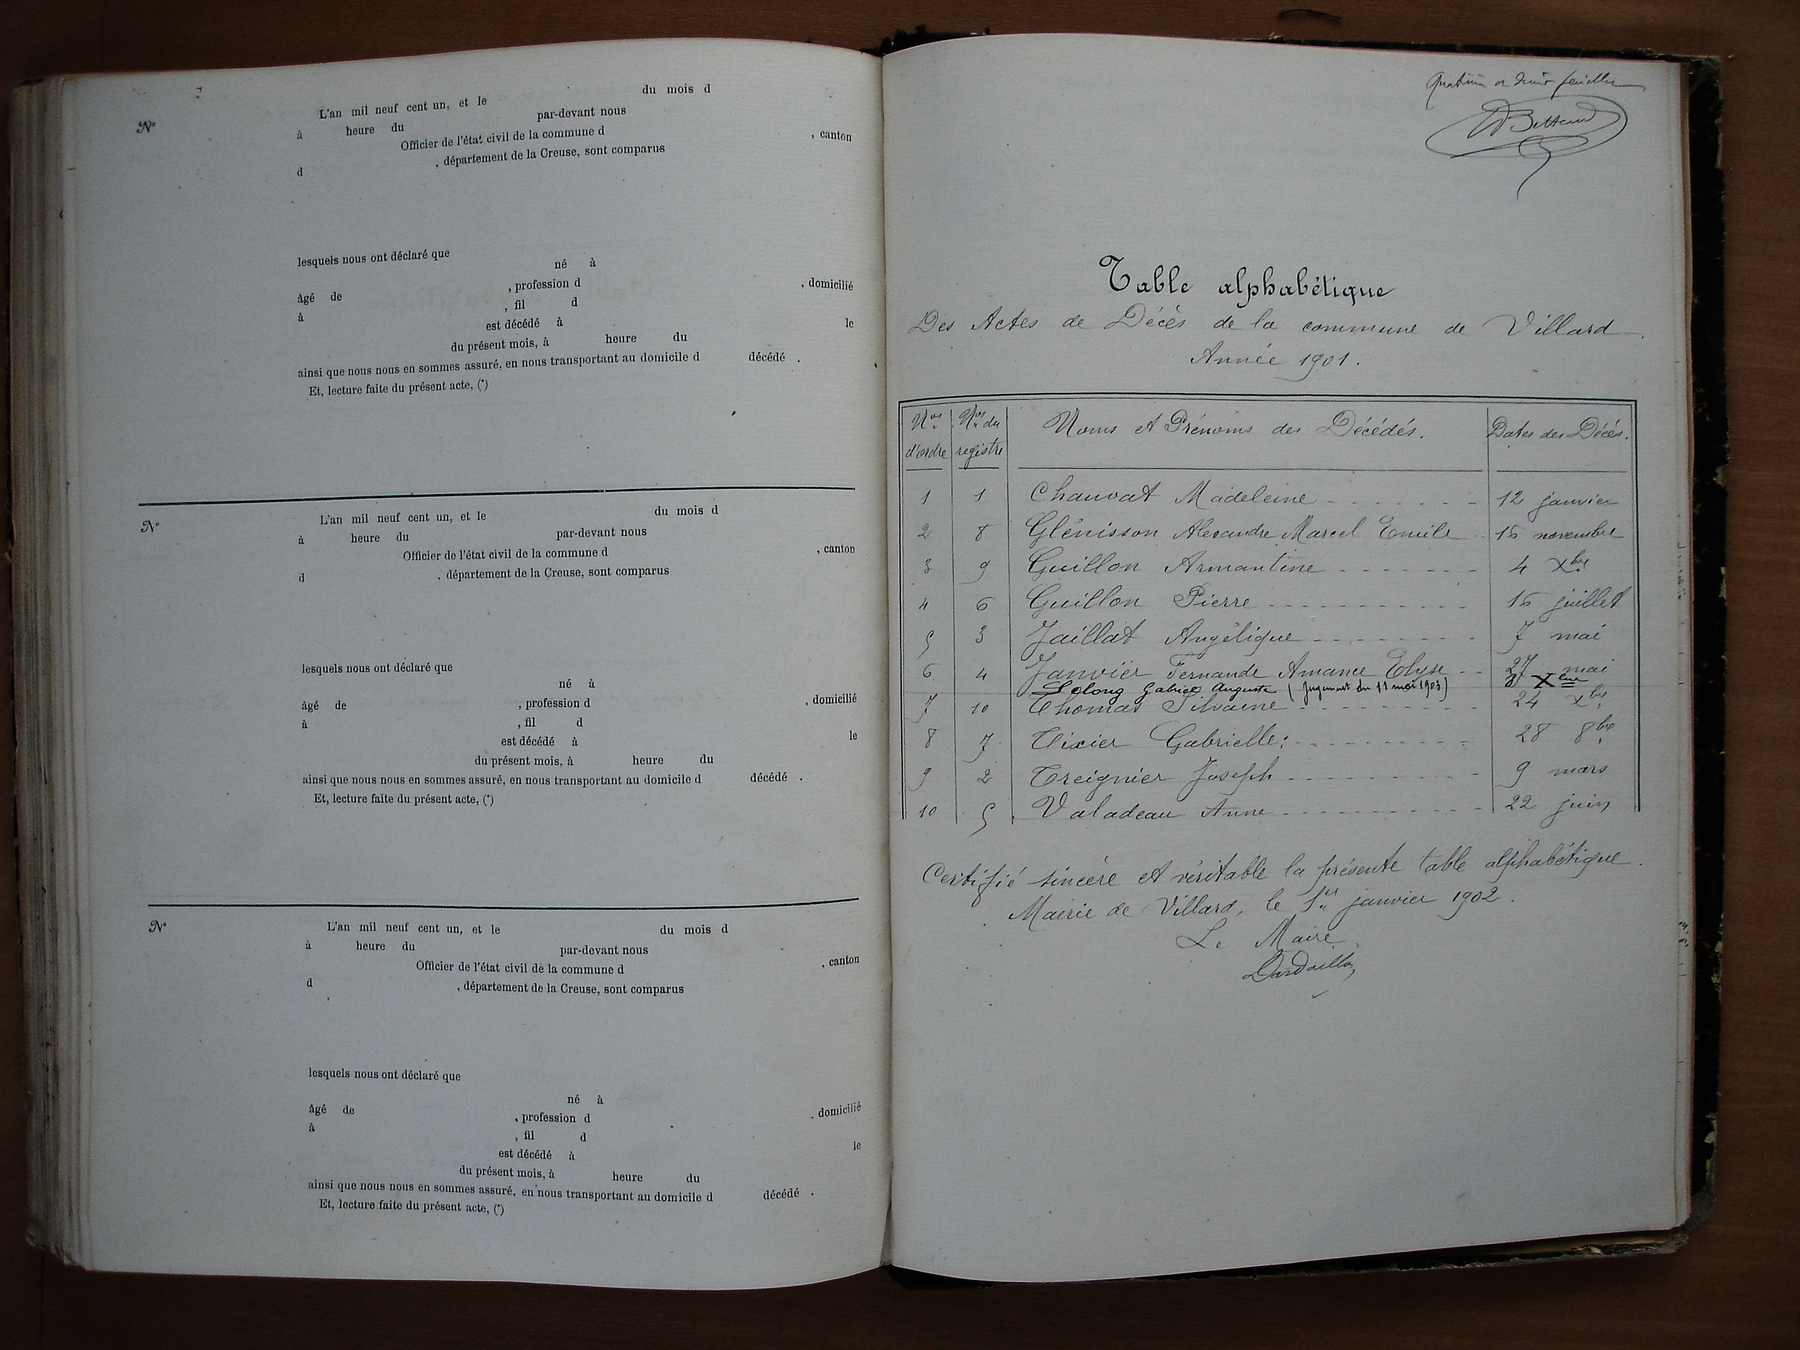 L'an mil neuf cent un, et le du mois d
N° à heure du par-devant nous
Officier de l'état civil de la commune d , canton
d , département de la Creuse, sont comparus
lesquels nous ont déclaré que
né à
âgé de , profession d , domicilié
à , fil d
est décédé à le
du présent mois, à heure du
ainsi que nous nous en sommes assuré, en nous transportant au domicile d décédé .
Et, lecture faite du présent acte, (*)
L'an mil neuf cent un, et le du mois d
N° à heure du par-devant nous
Officier de l'état civil de la commune d , canton
d , département de la Creuse, sont comparus
lesquels nous ont déclaré que
né à
âgé de , profession d , domicilié
à , fil d
est décédé à le
du présent mois, à heure du
ainsi que nous nous en sommes assuré, en nous transportant au domicile d décédé .
Et, lecture faite du présent acte, (*)
N° L'an mil neuf cent un, et le du mois d
à heure du par-devant nous
Officier de l'état civil de la commune d , canton
d , département de la Creuse, sont comparus
lesquels nous ont déclaré que
né à
âgé de , profession d , domicilié
à , fil d
est décédé à le
du présent mois, à heure du
ainsi que nous nous en sommes assuré, en nous transportant au domicile d décédé .
Et, lecture faite du présent acte, (*)
Table alphabétique
Des Actes de Décès de la commune de Villard.
Année 1901.
Nos d'ordre Nos du registre Noms et Prénoms des Décédés. Dates des Décès.
1 1 Chauvat Madeleine 12 janvier
2 8 Glénisson Alexandre Marcel Emile 16 novembre
3 9 Guillon Armantine 4 Xbre
4 6 Guillon Pierre 16 juillet
5 3 Jaillat Angélique 7 mai
6 4 Janvier Fernande Amance Elyse 27 mai
Lelong Gabriel Auguste (jugement du 11 mai 1903) 8 Xbre
7 10 Thomas Silvaine 24 Xbre
8 7 Tixier Gabrielle 28 8bre
9 2 Treignier Joseph 9 mars
10 5 Valadeau Anne 22 juin
Certifié sincère et véritable la présente table alphabétique.
Mairie de Villard, le 1er janvier 1902.
Le Maire